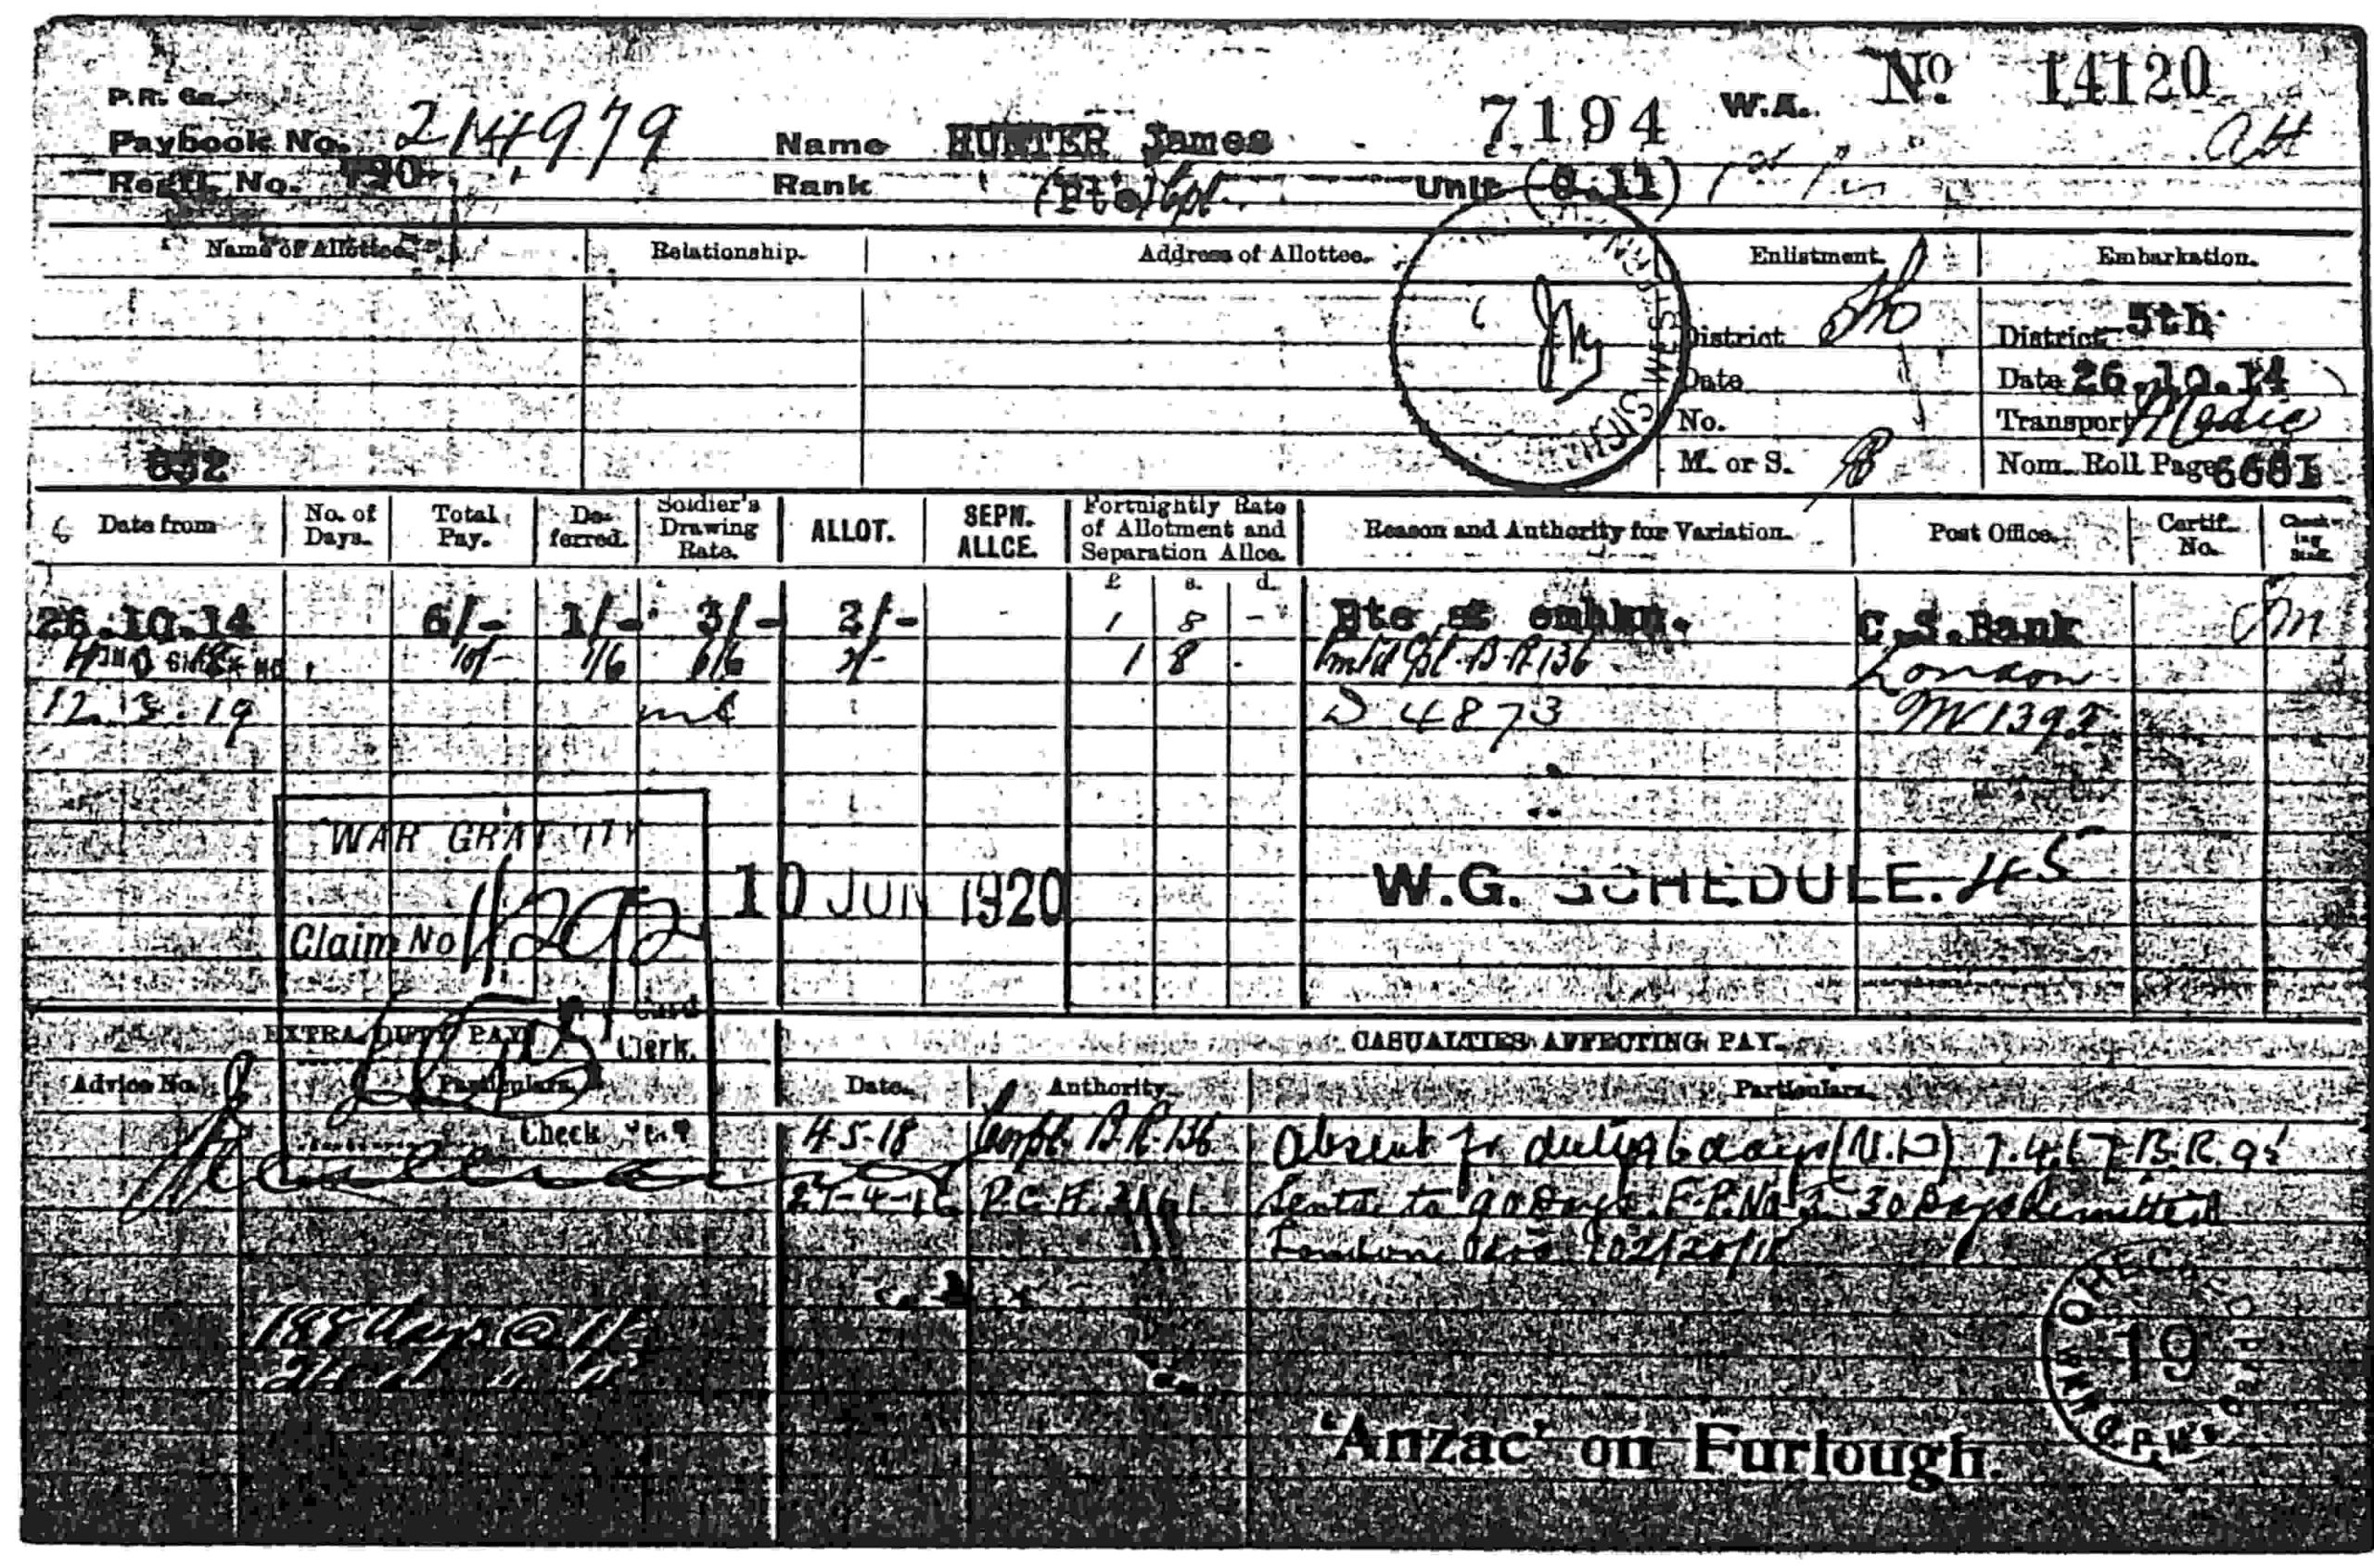 W.A. No. 14120
P.R. 6a.
Paybook No. 214979 Name HUNTER James 7194 AH
Regtl. No. 790 Rank (Pte) Cpl. Unit (G.11)
Name of Allottee. Relationship. Address of Allottee. Enlistment. Embarkation.
District District 5th
Date Date 26.10.14
No. Transport Medic
652 M. or S. Nom. Roll Page 6681
Date from No. of Days. Total Pay. Deferred. Soldier's Drawing Rate. ALLOT. SEPN. ALLCE. Fortnightly Rate of Allotment and Separation Allce. Reason and Authority for Variation. Post Office. Certif. No. Checking
£ s. d.
26.10.14 6/- 1/- 3/- 2/- - 1 8 - Pte at embkn. C.S.Bank
10/- 1/6 6/6 2/- 1 8 . Cpl. B.R. 136 London
12.3.19 nil D 4873
WAR GRATUITY
10 JUN 1920 W.G. SCHEDULE. 45
Claim No 11292
Card Clerk.
EXTRA DUTY PAY CASUALTIES AFFECTING PAY.
Advice No. Particulars. Date. Authority. Particulars.
Check
4-5-18 Corpl. B.R. 136 Absent fr duty 6 days (N.D) 7.4.17 B.R. 95
27-4-16 P.C.H. 3161 Sentd. to 90 Days. F.P. No 2 30 Days Remitted
London
188 days @ 1/-
CHECKED
19
'Anzac' on Furlough.